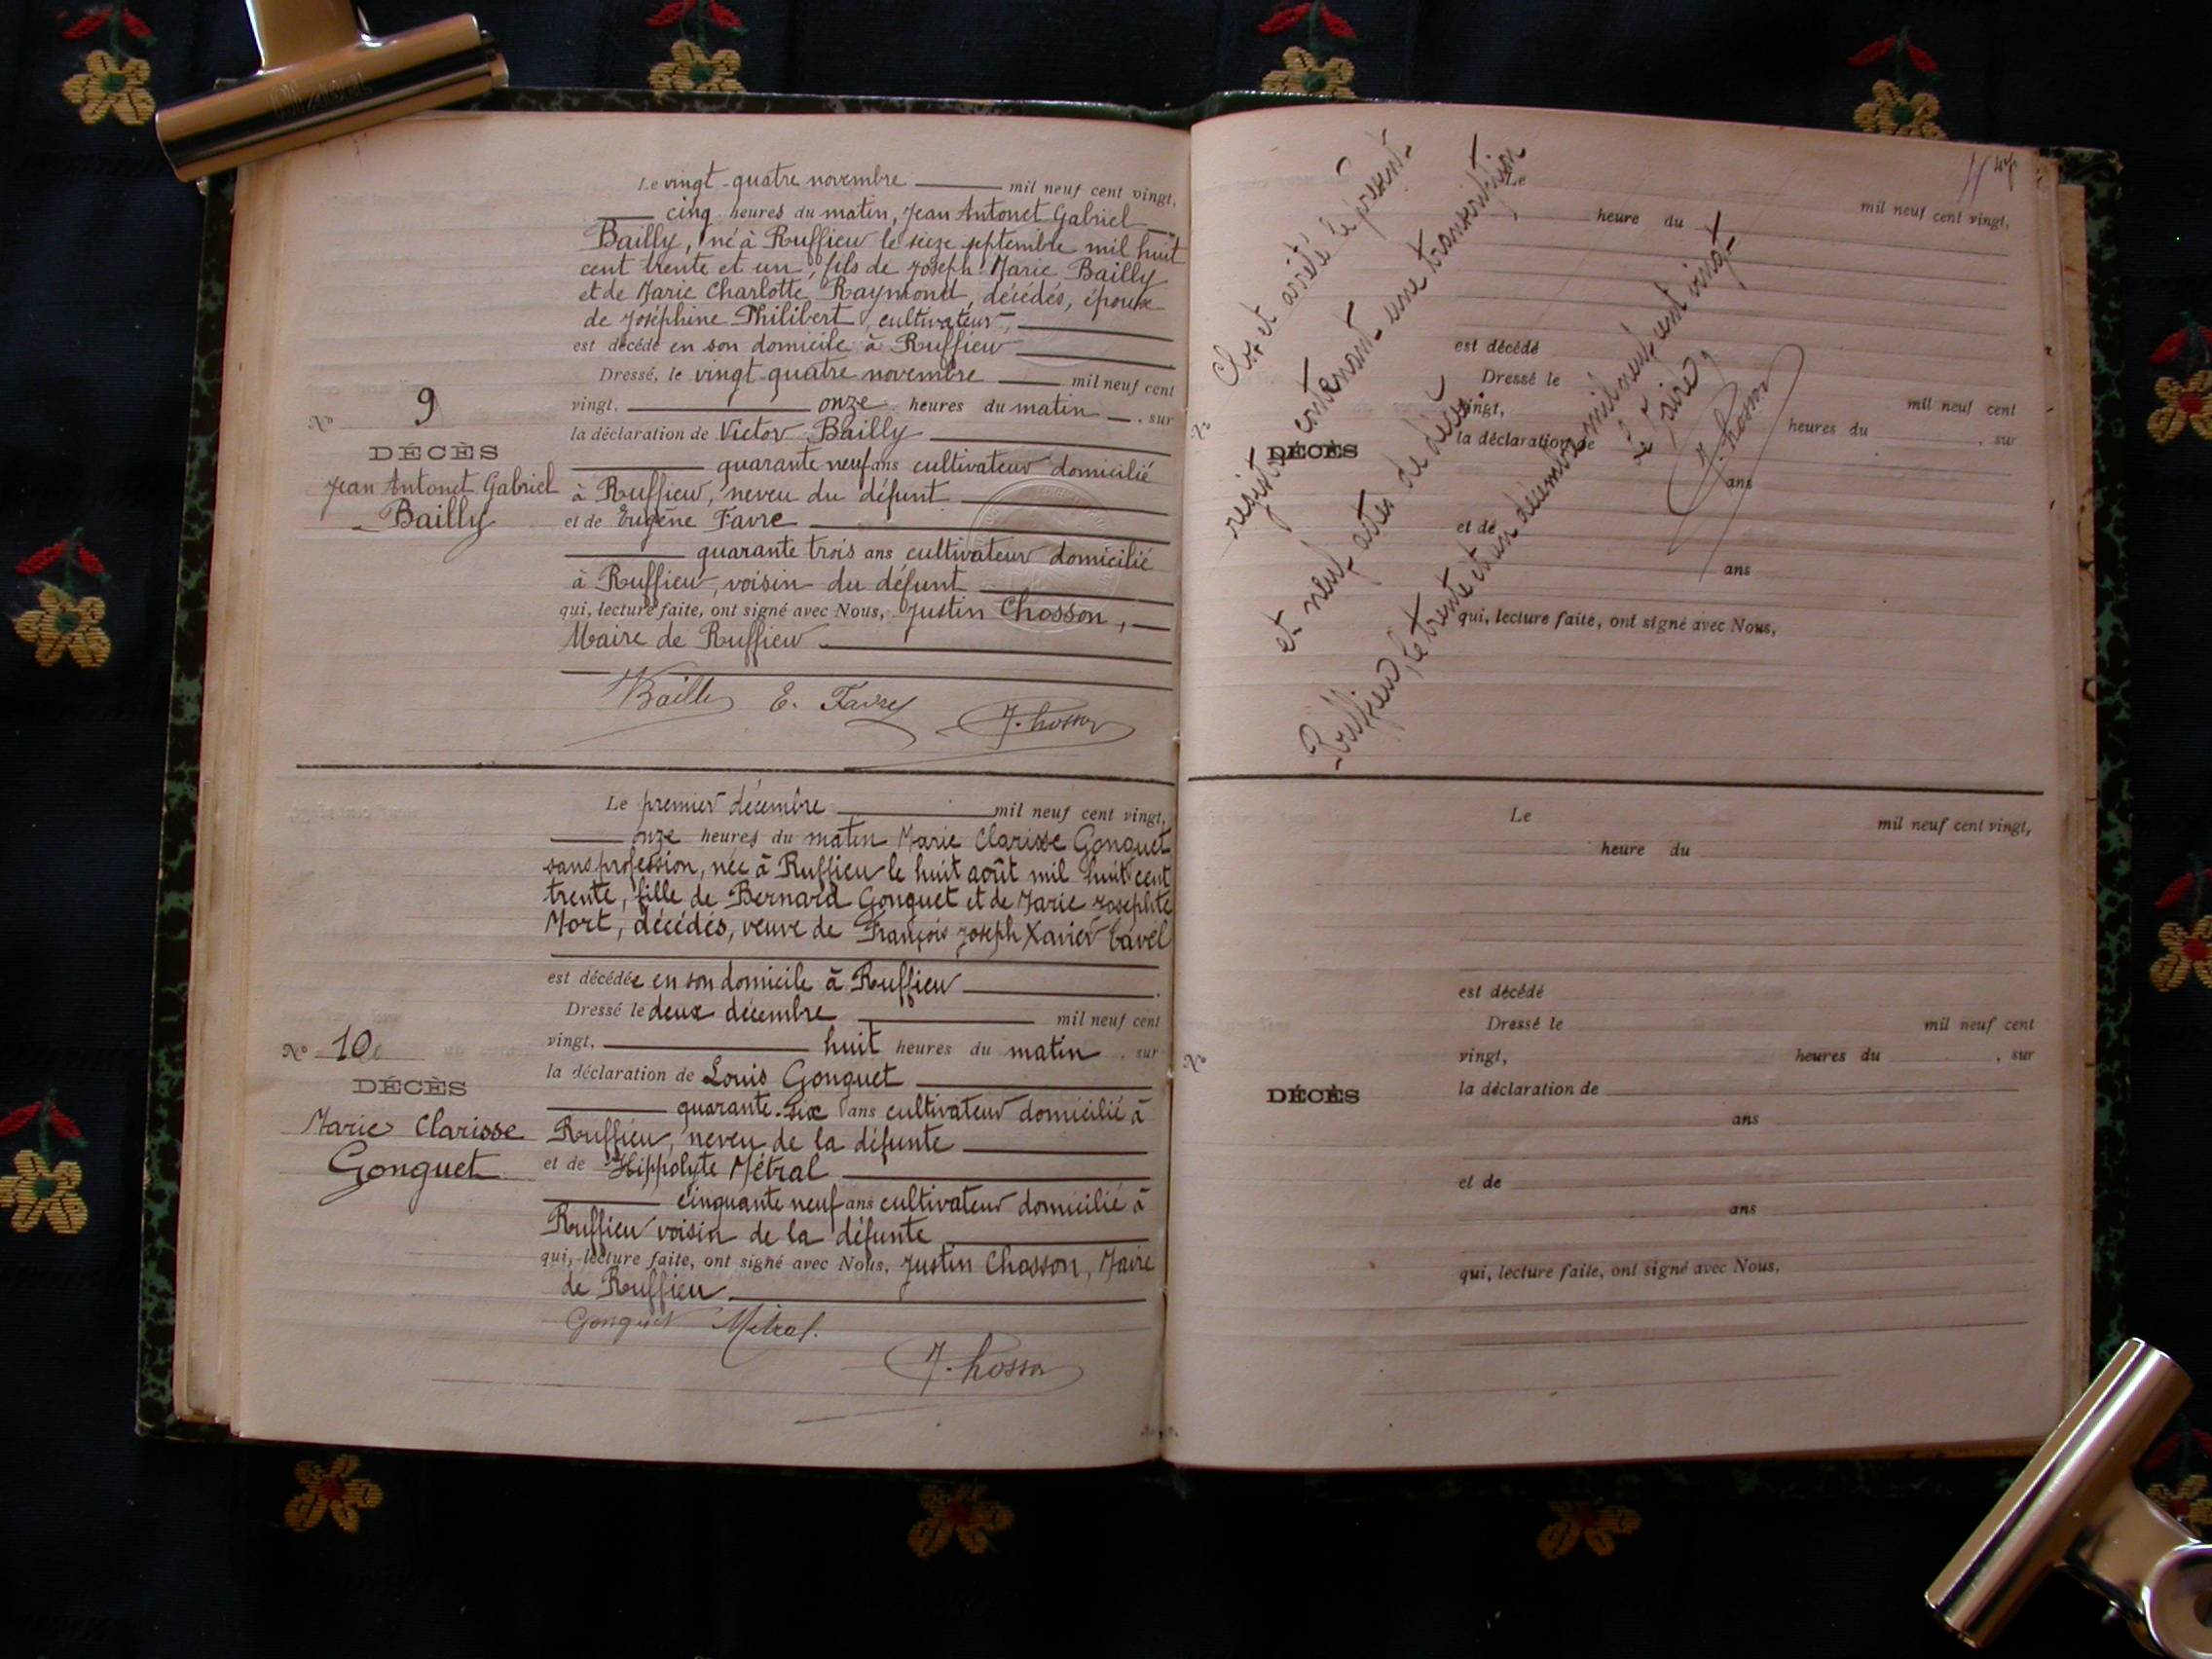 Le vingt-quatre novembre mil neuf cent vingt,
cinq heures du matin, Jean Antonet Gabriel
Bailly, né à Ruffieu le seize septembre mil huit
cent trente et un, fils de Joseph Marie Bailly
et de Marie Charlotte Raymond, décédés, époux
de Joséphine Philibert, cultivateur,
est décédé en son domicile à Ruffieu
Dressé, le vingt-quatre novembre mil neuf cent
vingt, onze heures du matin, sur
la déclaration de Victor Bailly
quarante neuf ans cultivateur domicilié
à Ruffieu, neveu du défunt
et de Eugène Favre
quarante trois ans cultivateur domicilié
à Ruffieu, voisin du défunt
qui, lecture faite, ont signé avec Nous, Justin Chosson,
Maire de Ruffieu
VBailly E. Favre J. Chosson
No 9
DÉCÈS
Jean Antonet Gabriel
Bailly
Le premier décembre mil neuf cent vingt,
onze heures du matin Marie Clarisse Gonguet
sans profession, née à Ruffieu le huit août mil huit cent
trente, fille de Bernard Gonguet et de Marie Josephte
Mort, décédés, veuve de François Joseph Xavier Tavel
est décédée en son domicile à Ruffieu
Dressé le deux décembre mil neuf cent
vingt, huit heures du matin, sur
la déclaration de Louis Gonguet
quarante-six ans cultivateur domicilié à
Ruffieu, neveu de la défunte
et de Hippolyte Métral
cinquante neuf ans cultivateur domicilié à
Ruffieu voisin de la défunte
qui, lecture faite, ont signé avec Nous, Justin Chosson, Maire
de Ruffieu
Gonguet Métral.
J. Chosson
No 10
DÉCÈS
Marie Clarisse
Gonguet
Clos et arrêté le présent
registre contenant une transcription
et neuf actes de décès
Ruffieu, le trente et un décembre mil neuf cent vingt
Le Maire
J. Chosson
Le
mil neuf cent vingt,
heure du
est décédé
Dressé le
mil neuf cent
vingt,
heures du , sur
la déclaration de
ans
et de
ans
qui, lecture faite, ont signé avec Nous,
No
DÉCÈS
Le
mil neuf cent vingt,
heure du
est décédé
Dressé le mil neuf cent
vingt, heures du , sur
la déclaration de
ans
et de
ans
qui, lecture faite, ont signé avec Nous,
No
DÉCÈS